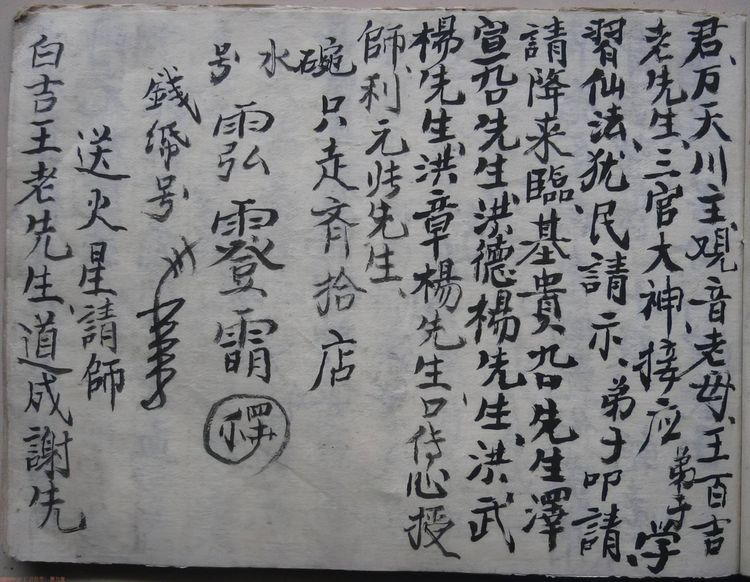 君、万天川主、观音老母、王百吉
老先生、三官大神、接应弟子学
習仙法、犹民請示、弟子叩請、
請降来臨、基貴呂先生、澤
宣呂先生、洪德楊先生、洪武
楊先生、洪章楊先生、口传心授
師利元帅先生、
碗只走齐拾店
水
号
錢紙号
送火星請師
白吉王老先生、道成謝先